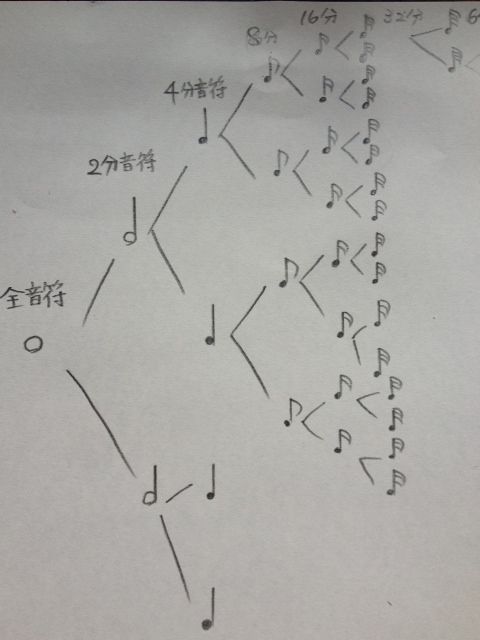 全音符
2分音符
4分音符
8分
16分
32分
6